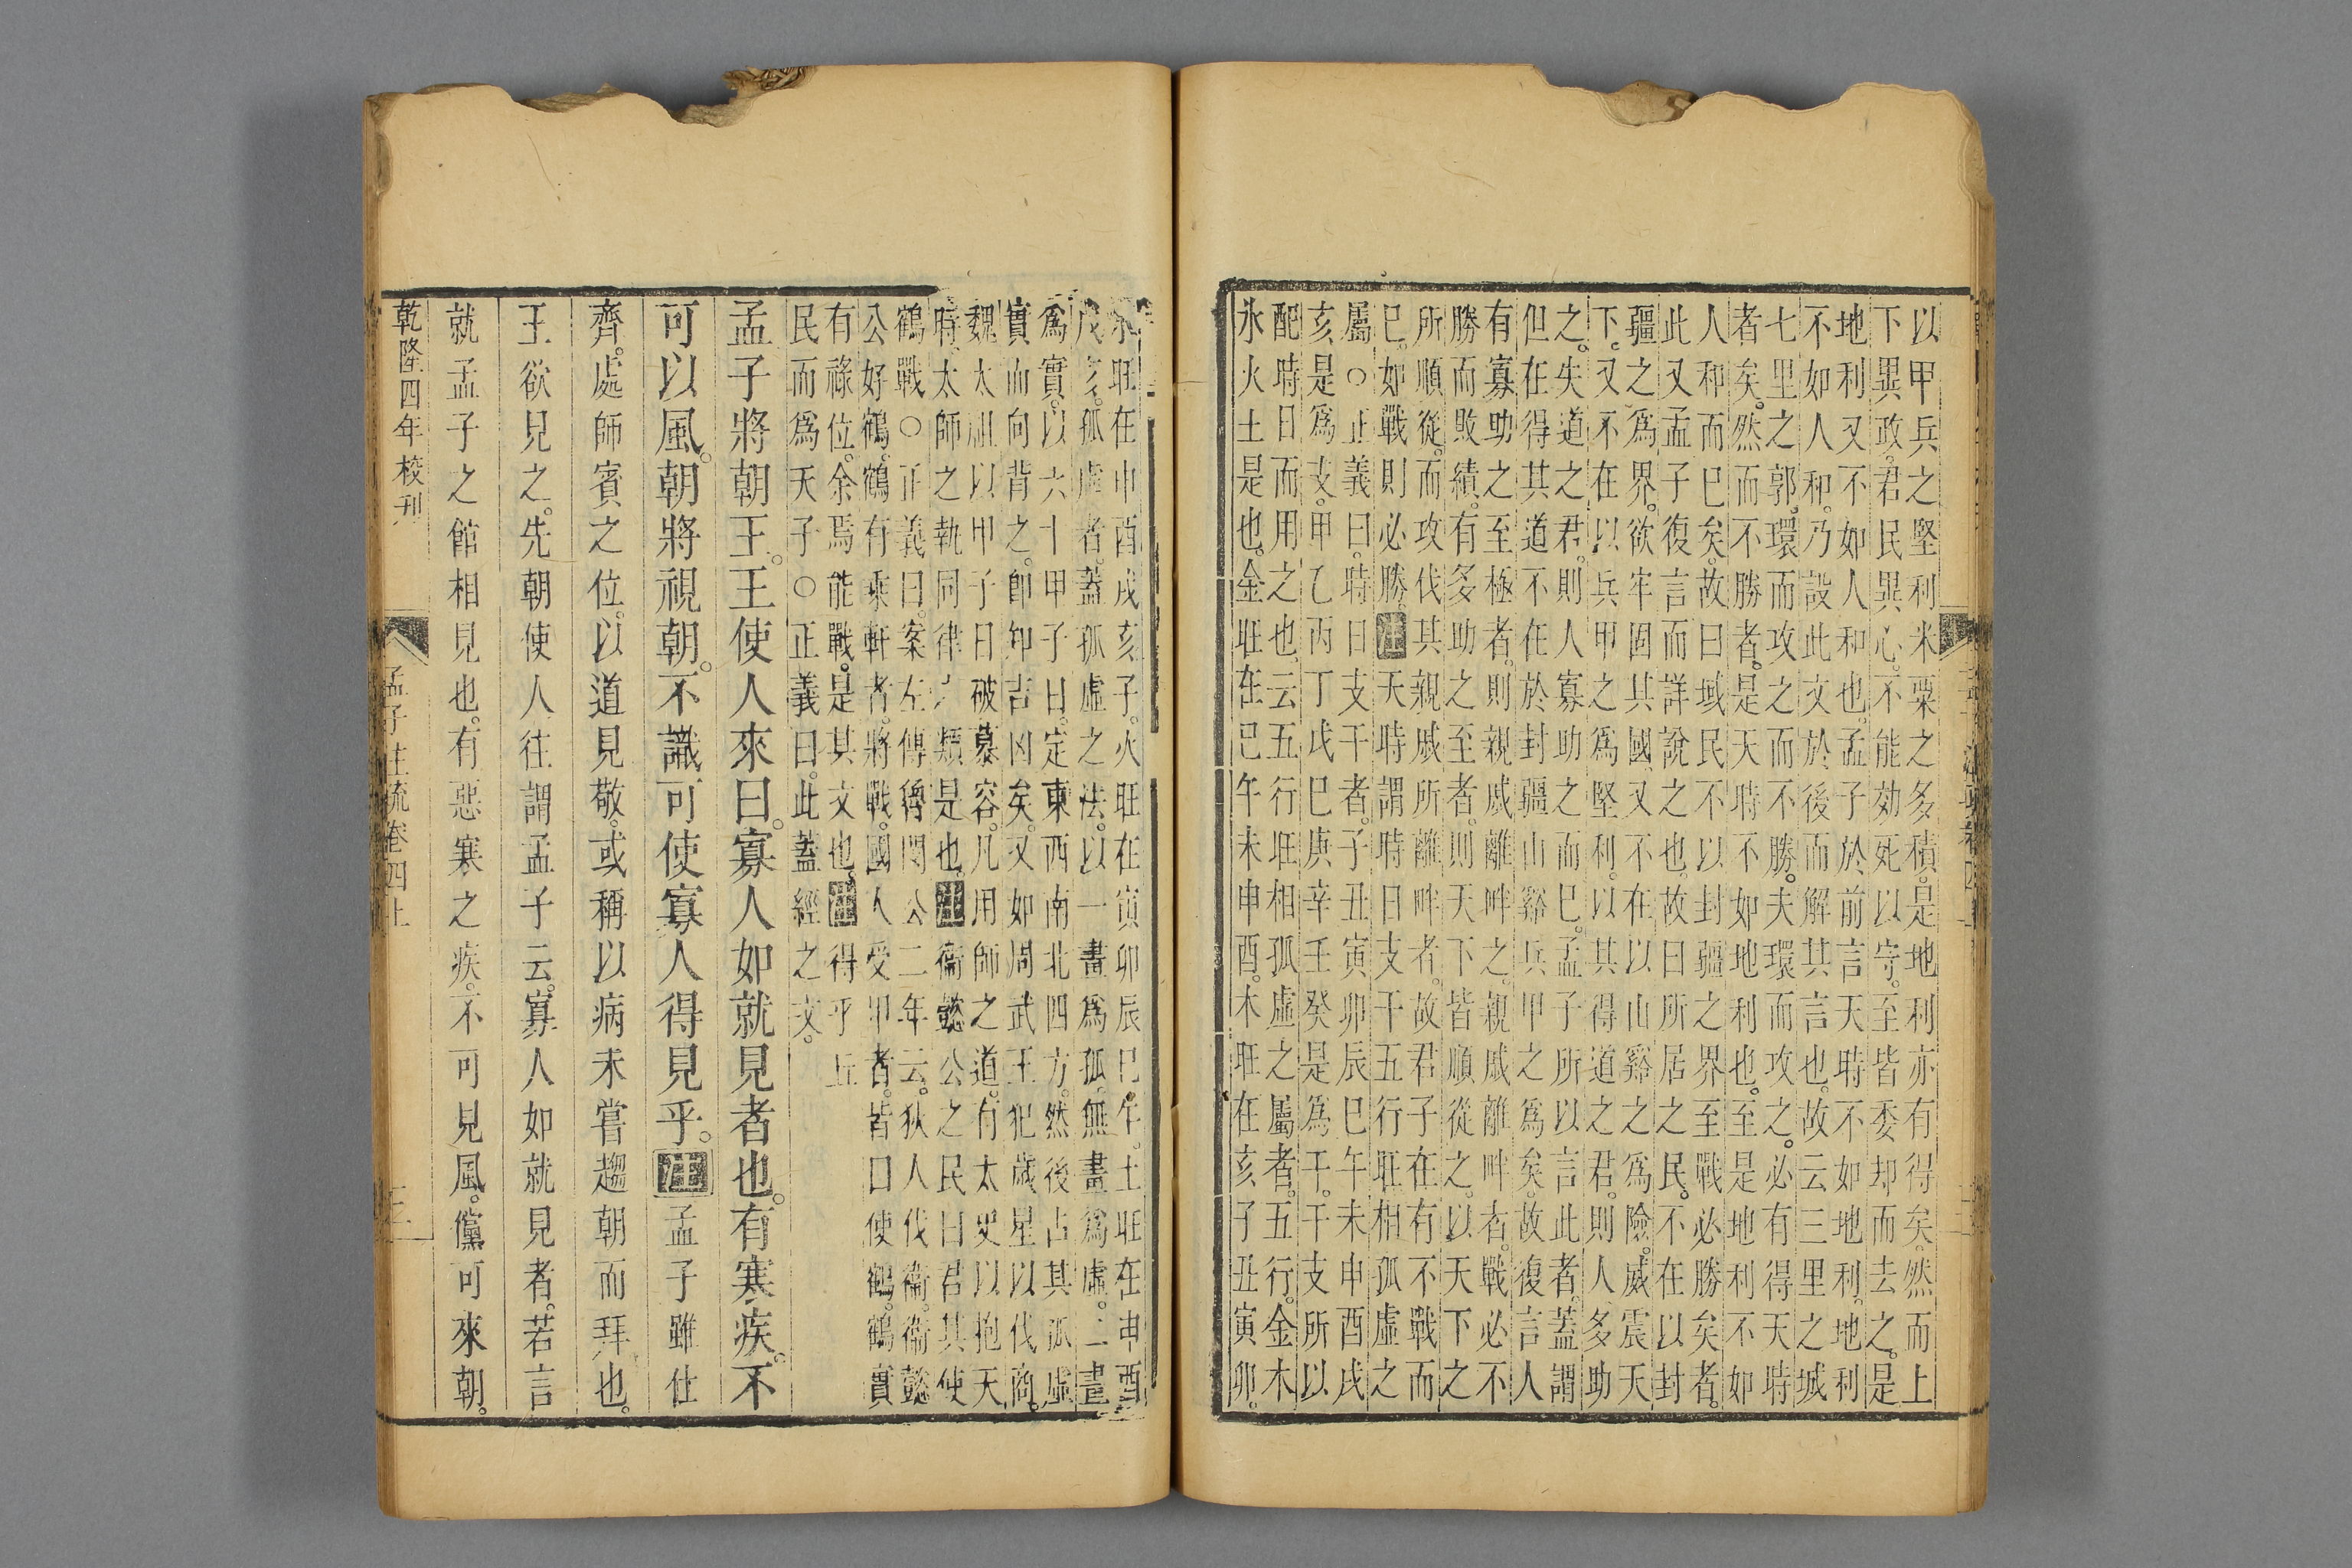 以甲兵之堅利米粟之多積。是地利亦有得矣。然而上
下異政。君民異心。不能効死以守。至皆委却而去之。是
地利又不如人和也。孟子於前言天時不如地利。地利
不如人和。乃設此文於後而解其言也。故云三里之城
七里之郭。環而攻之而不勝。夫環而攻之。必有得天時
者矣。然而不勝者。是天時不如地利也。至是地利不如
人和而已矣。故曰域民不以封疆之界。至戰必勝矣者。
此又孟子復言而詳說之也。故曰所居之民。不在以封
疆之爲界。欲牢固其國。又不在以山谿之爲險。威震天
下。又不在以兵甲之爲堅利。以其得道之君。則人多助
之。失道之之君。則人寡助之而已。孟子所以言此者。蓋謂
但在得其道。不在於封疆山谿兵甲之爲矣。故復言人
有寡助之至極者。則親戚離畔之。親戚離畔者。戰必不
勝而敗績。有多助之至者。則天下皆順從之。以天下之
所順從。而攻伐其親戚所離畔者。故君子在有不戰而
巳。如戰則必勝。注天時謂時日支干五行旺相孤虛之
屬○正義曰。時日支干者。子丑寅卯辰巳午未申酉戌
亥是爲支。甲乙丙丁戊巳庚辛壬癸是爲干。干支所以
配時日而用之也。云五行旺相孤虛之屬者。五行。金木
水火土是也。金旺在巳午未申酉。木旺在亥子丑寅卯。
水旺在申酉戌亥子。火旺在寅卯辰巳午。土旺在申酉
戌亥。孤虛者。蓋孤虛之法。以一畫爲孤。無畫爲虛。二畫
爲實。以六十甲子日。定東西南北四方。然後占其孤虛
實而向背之。卽知吉凶矣。又如周武王犯歲星以伐商。
魏太祖以甲子日破慕容。凡用師之道。有太史以抱天
時。太師之執同律之類是也。注衞懿公之民曰君其使
鶴戰○正義曰。案左傳魯閔公二年云。狄人伐衞。衞懿
公好鶴。鶴有乘軒者。將戰。國人受甲者。皆曰使鶴。鶴實
有祿位。余焉能戰。是其文也。注得乎丘
民而爲天子○正義曰。此蓋經之文。
孟子將朝王。王使人來曰。寡人如就見者也。有寒疾。不
可以風。朝將視朝。不識可使寡人得見乎。注孟子雖仕
齊。處師賓之位。以道見敬。或稱以病未嘗趨朝而拜也。
王欲見之。先朝使人往謂孟子云。寡人如就見者。若言
就孟子之館相見也。有惡寒之疾。不可見風。儻可來朝。
乾隆四年校刊
孟子注疏卷四上
三